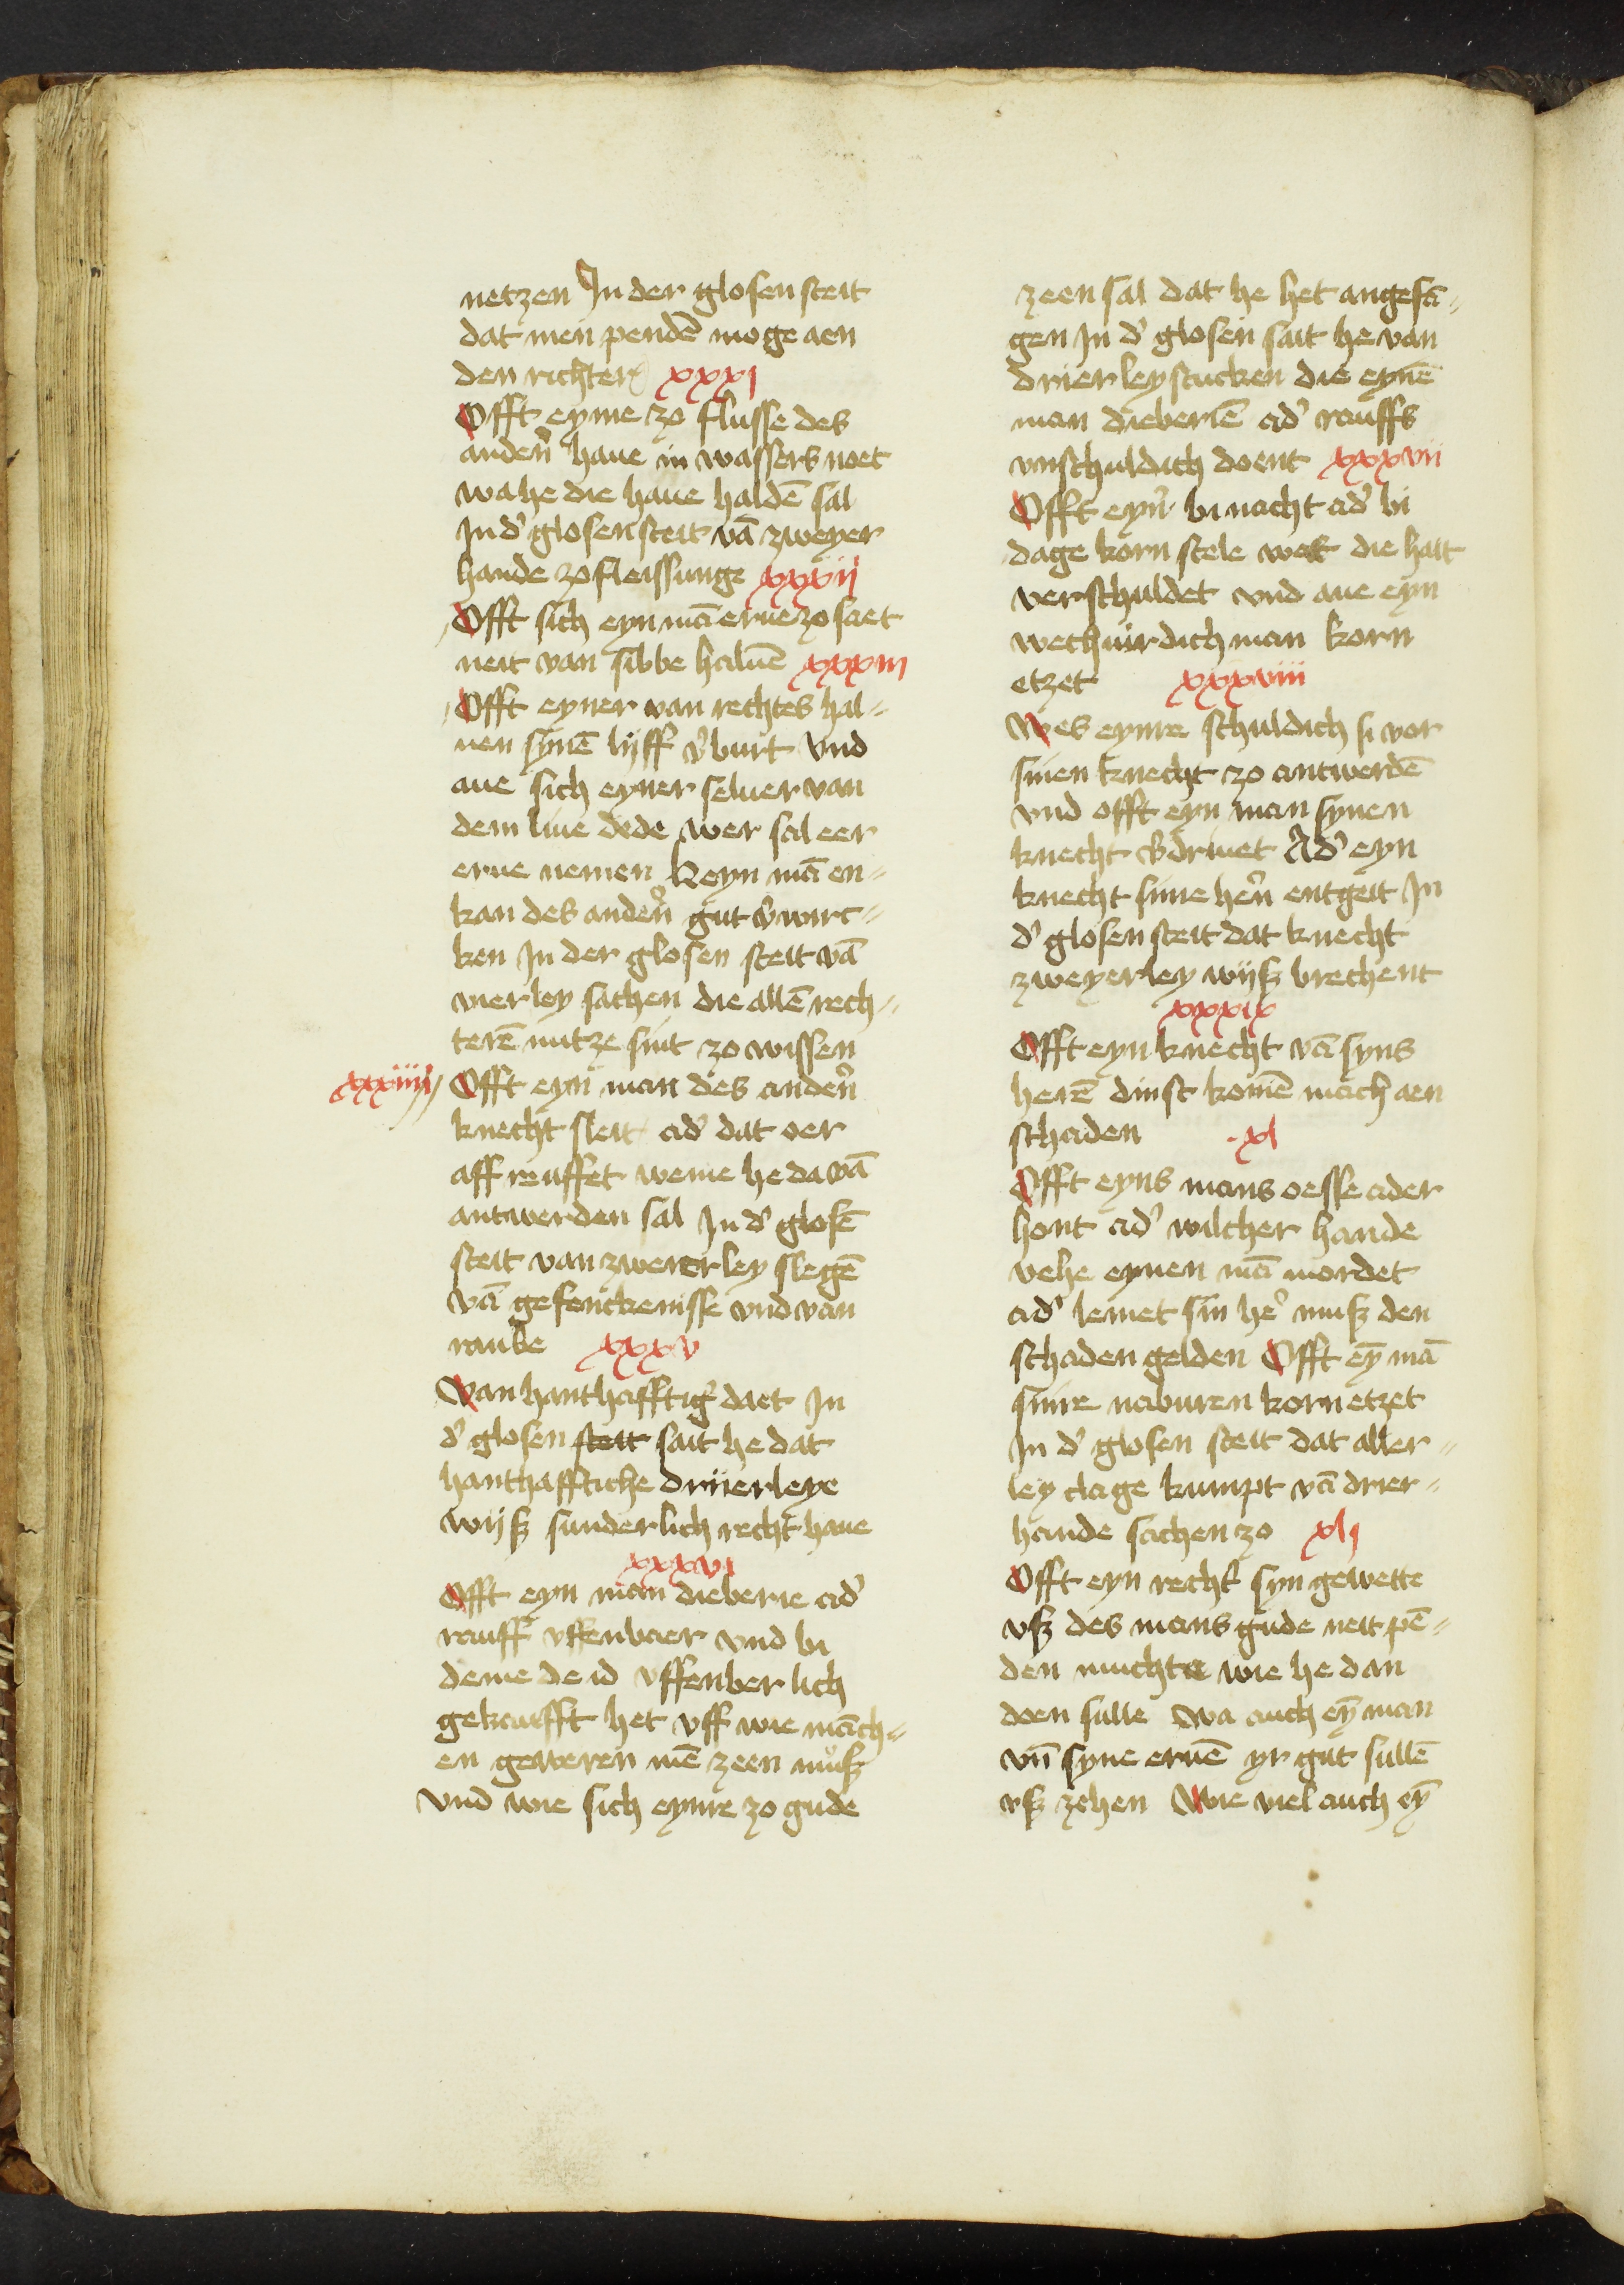 netzen In der glosen steit
dat men pendē moge aen
den richter xxxj
Offt eyme zo flusse des
andeṙn haue in wassers noet
wa he die haue haldē sal
In d' glosen steit vā zweyer
hande zofleissunge xxxij
Offt sich eyn mā erue zo saet
neit van sibbe haluē xxxiii
Offt eyner van rechtes hal⸗
uen synē lijff v'burt vnd
aue sich eyner seluer van
dem liue dede wer sal eer
erue nemen Keyn mā en⸗
kan des anden' gut v'wirc⸗
ken In der glosen steit vā
vierley sachen die allē rech⸗
terē nutze sint zo wissen
xxxiiij Offt eyn man des anden'
knecht sleit ad' dat oer
aff reuffet weme he da vā
antwerden sal In d' glosē
steit van zweierley slegē
vā gefenckenisse vnd van
raube xxxv
Van hanthafftig' daet In
d' glosen steit sait he dat
hanthafftiche drijerleye
wijsz sunderlich recht haue
xxxvi
Offt eyn man dieberie ad'
rauff vffenbaer vnd bi
deme de id vffenberlich
gekaufft het vff wie māch⸗
en geweren mē zeen musz
vnd wie sich eyme zo gude
zeen sal dat he het angefā⸗
gen In d' glosen sait he van
drierley stucken die eynē
man dieberiē ad' rauffs
vnschuldich doent xxxvii
Offt eyn' bi nacht ad' bi
dage korn stele wat die hait
verschuldet vnd aue eyn
wechuirdich man korn
etzet xxxviii
Wes eyme schuldich si vor
sinen knecht zo antwerdē
vnd offt eyn man synen
knecht v'driuet Ad' eyn
knecht sime hen' entgeit In
d' glosen steit dat knecht
zweyerley wijsz brechent
xxxix
Offt eyn knecht vā syns
herē dinst komē mach aen
schaden xl
Offt eyns mans oesse ader
hont ad' wilcher hande
vehe eynen mā mordet
ad' lemet sin he' musz den
schaden gelden Offt eȳ mā
sime naburen korn etzet
In d' glosen steit dat aller⸗
ley clage kumpt vā drier⸗
hande sachen zo xlj
Offt eyn recht' syn gewette
vsz des mans gude neit pē⸗
den muchte wie he dan
doen sulle Wa auch eȳ man
vn̄ syne eruē yr gut sullē
vsz zehen Wie viel auch eȳ